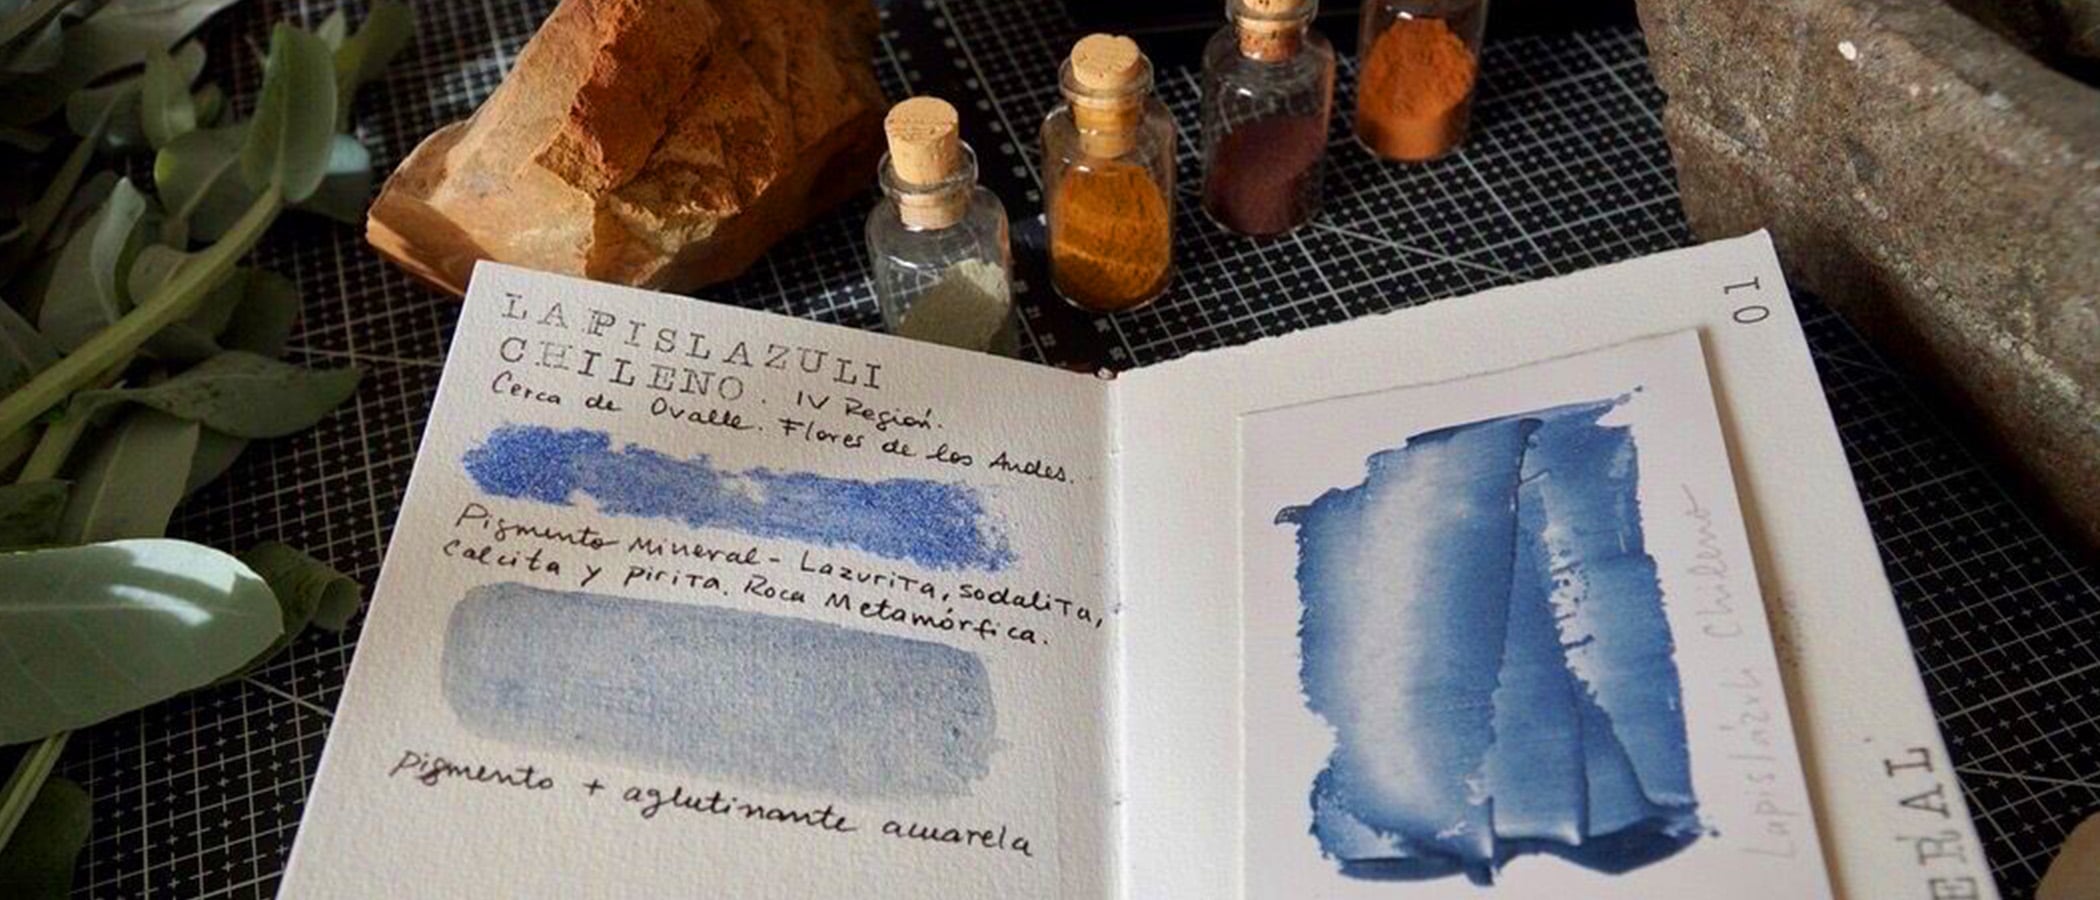 LAPISLAZULI
CHILENO. IV Región.
Cerca de Ovalle. Flores de los Andes.
Pigmento Mineral - Lazurita, sodalita,
calcita y pirita. Roca Metamórfica.
pigmento + aglutinante acuarela
01
Lapislázuli Chileno
ERAL